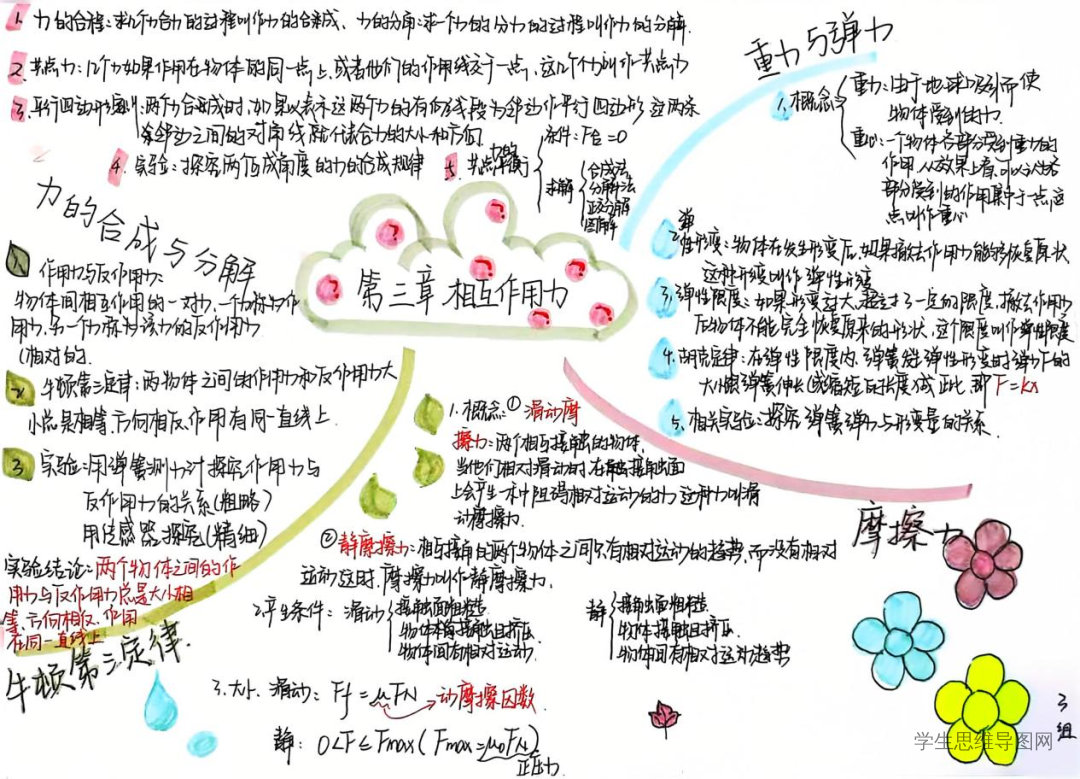 1. 力的合程:求几个力合力的过程叫作力的合成、力的分解:求一个力的分力的过程叫作力的分解.
2. 共点力:几个力如果作用在物体的同一点上,或者他们的作用线交于一点,这几个力叫作共点力
3. 平行四边形定则:两个合成时,如果以表示这两个力的有向线段为邻边作平行四边形 这两条
邻边之间的对角线就代表合力的大小和方向.
4. 实验:探究两个互成角度的力的合成规律
5. 共点力平衡
条件:F合=0
求解
合成法
分解法
正交分解
图解
力的合成与分解
重力与弹力
1. 概念
重力:由于地球吸引而使
物体受到的力.
重心:一个物体各部分受到重力的
作用,从效果上看,可以认为各
部分受到的作用集中于一点,这
点叫作重心
2. 弹性形变:物体在发生形变后,如果撤去作用力能够恢复原状
这种形变叫作弹性形变
3. 弹性限度:如果形变过大,超过了一定的限度,撤去作用力
后物体不能完全恢复原来的形状,这个限度叫作弹性限度
4. 胡克定律:在弹性限度内,弹簧发生弹性形变时弹力F的
大小跟弹簧伸长(或缩短的长度)成正比,即 F=kx
5. 相关实验:探究弹簧弹力与形变量的关系.
第三章 相互作用力
1 作用力与反作用力:
物体间相互作用的一对力,一个力称为作
用力,另一个力称为该力的反作用力
(相对的.
2 牛顿第三定律:两物体之间的作用力和反作用力大
小总是相等、方向相反、作用在同一直线上.
3 实验:用弹簧测力计探究作用力与
反作用力的关系(粗略)
用传感器探究(精细)
实验结论:两个物体之间的作
用力与反作用力总是大小相
等、方向相反、作用
在同一直线上
牛顿第三定律.
1. 概念:① 滑动摩
擦力:两个相互接触的物体,
当他们相对滑动时,在接触面
上会产生一种阻碍相对运动的力 这种力叫滑
动摩擦力.
② 静摩擦力:相互接触的两个物体之间只有相对运动的趋势,而没有相对
运动,这时,摩擦力叫作静摩擦力.
2.产生条件:滑动
接触面粗糙
物体接触且挤压
物体间有相对运动.
静
接触面粗糙
物体接触且挤压
物体间有相对运动趋势
3. 大小. 滑动:Ff=μFN→动摩擦因数
静:0<F≤Fmax(Fmax=μ0FN)
正压力.
摩擦力
3组
学生思维导图网